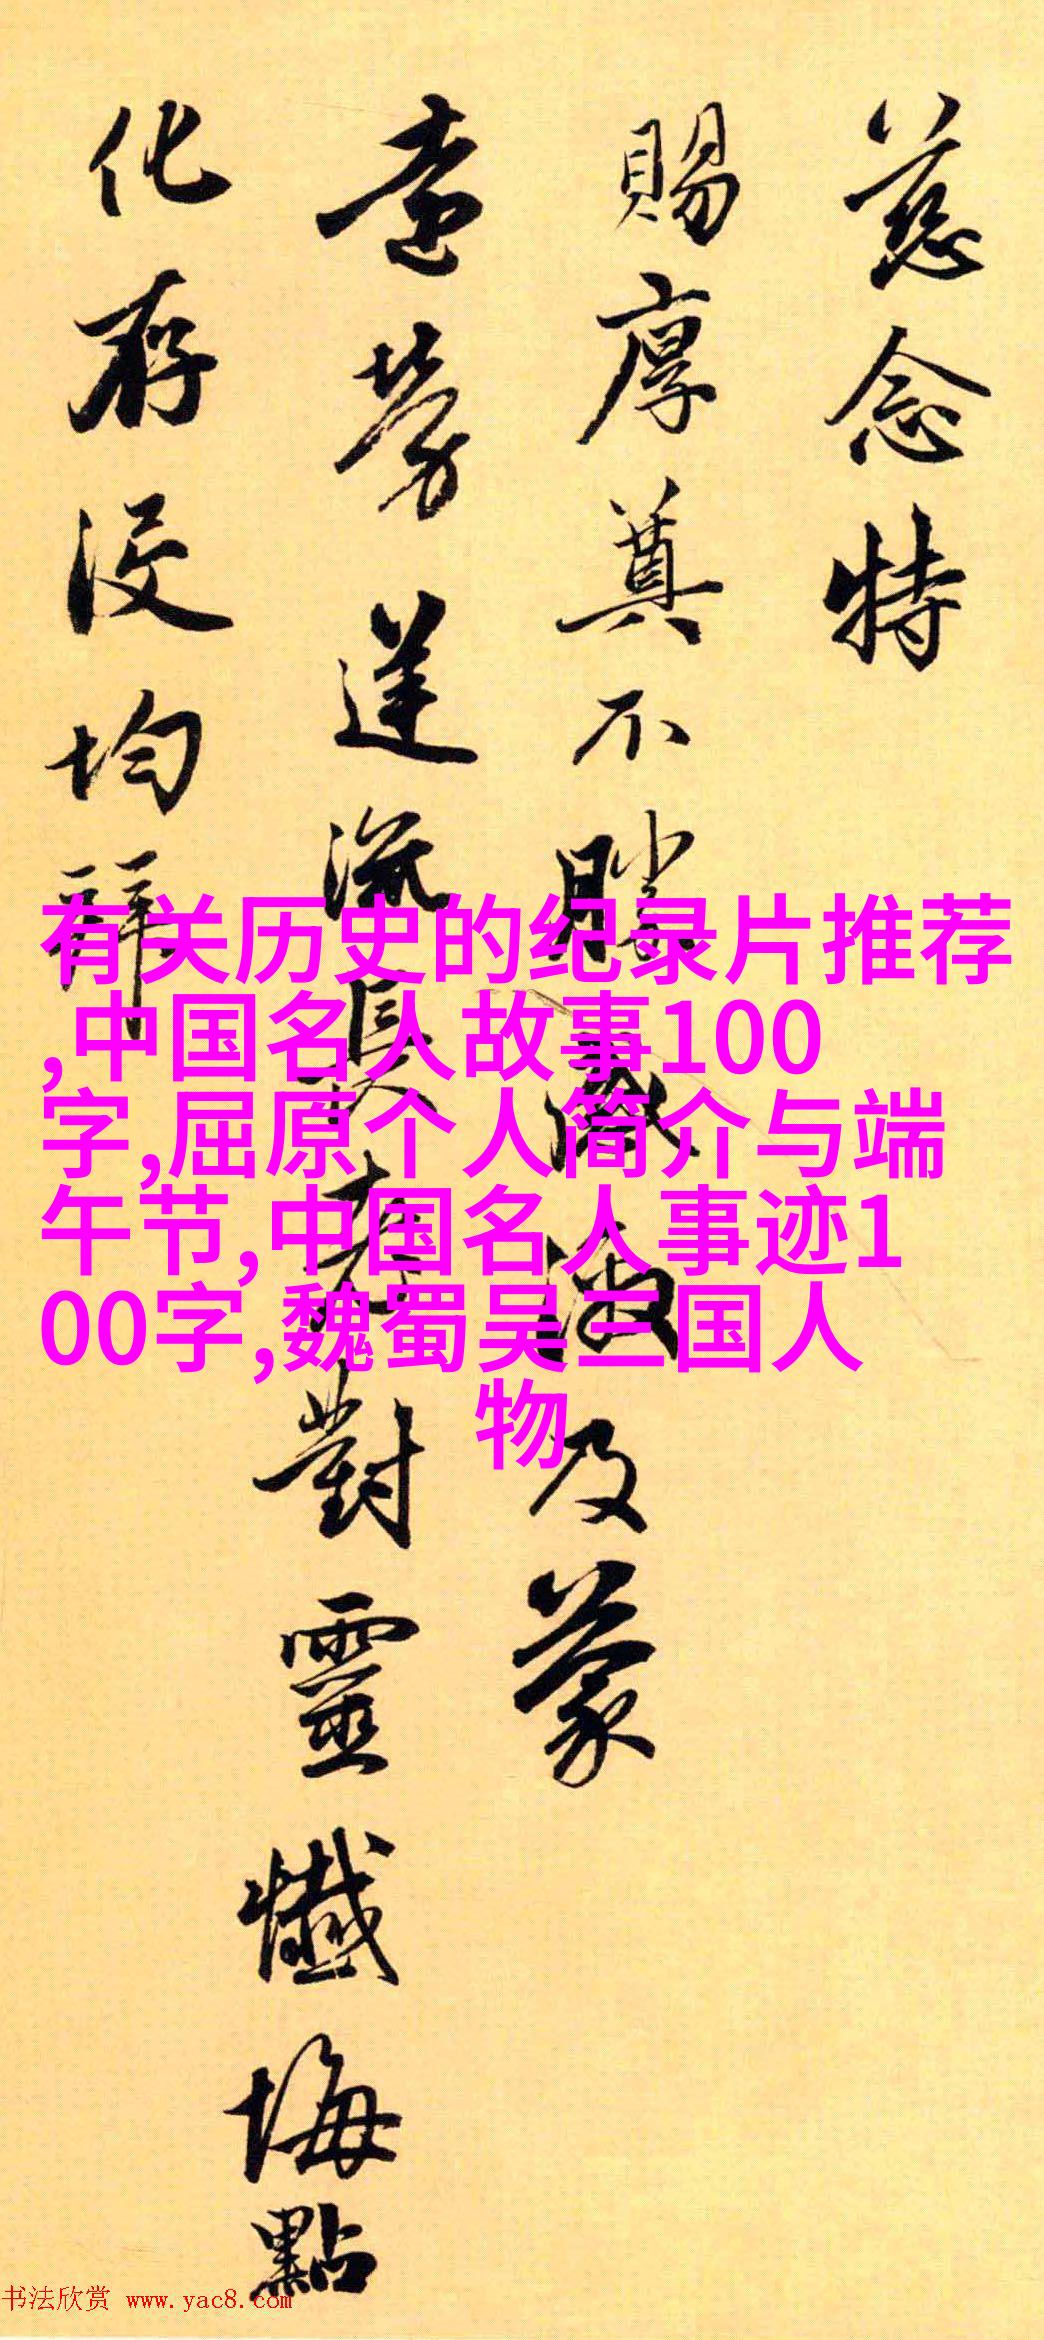 慈念特
賜厚奠不勝感激及蒙
勞 流長老對靈懺悔點
化存沒均
有关历史的纪录片推荐
,中国名人故事100
字,屈原个人简介与端
午节,中国名人事迹1
00字,魏蜀吴三国人
物
书法欣赏 www.yac8.com